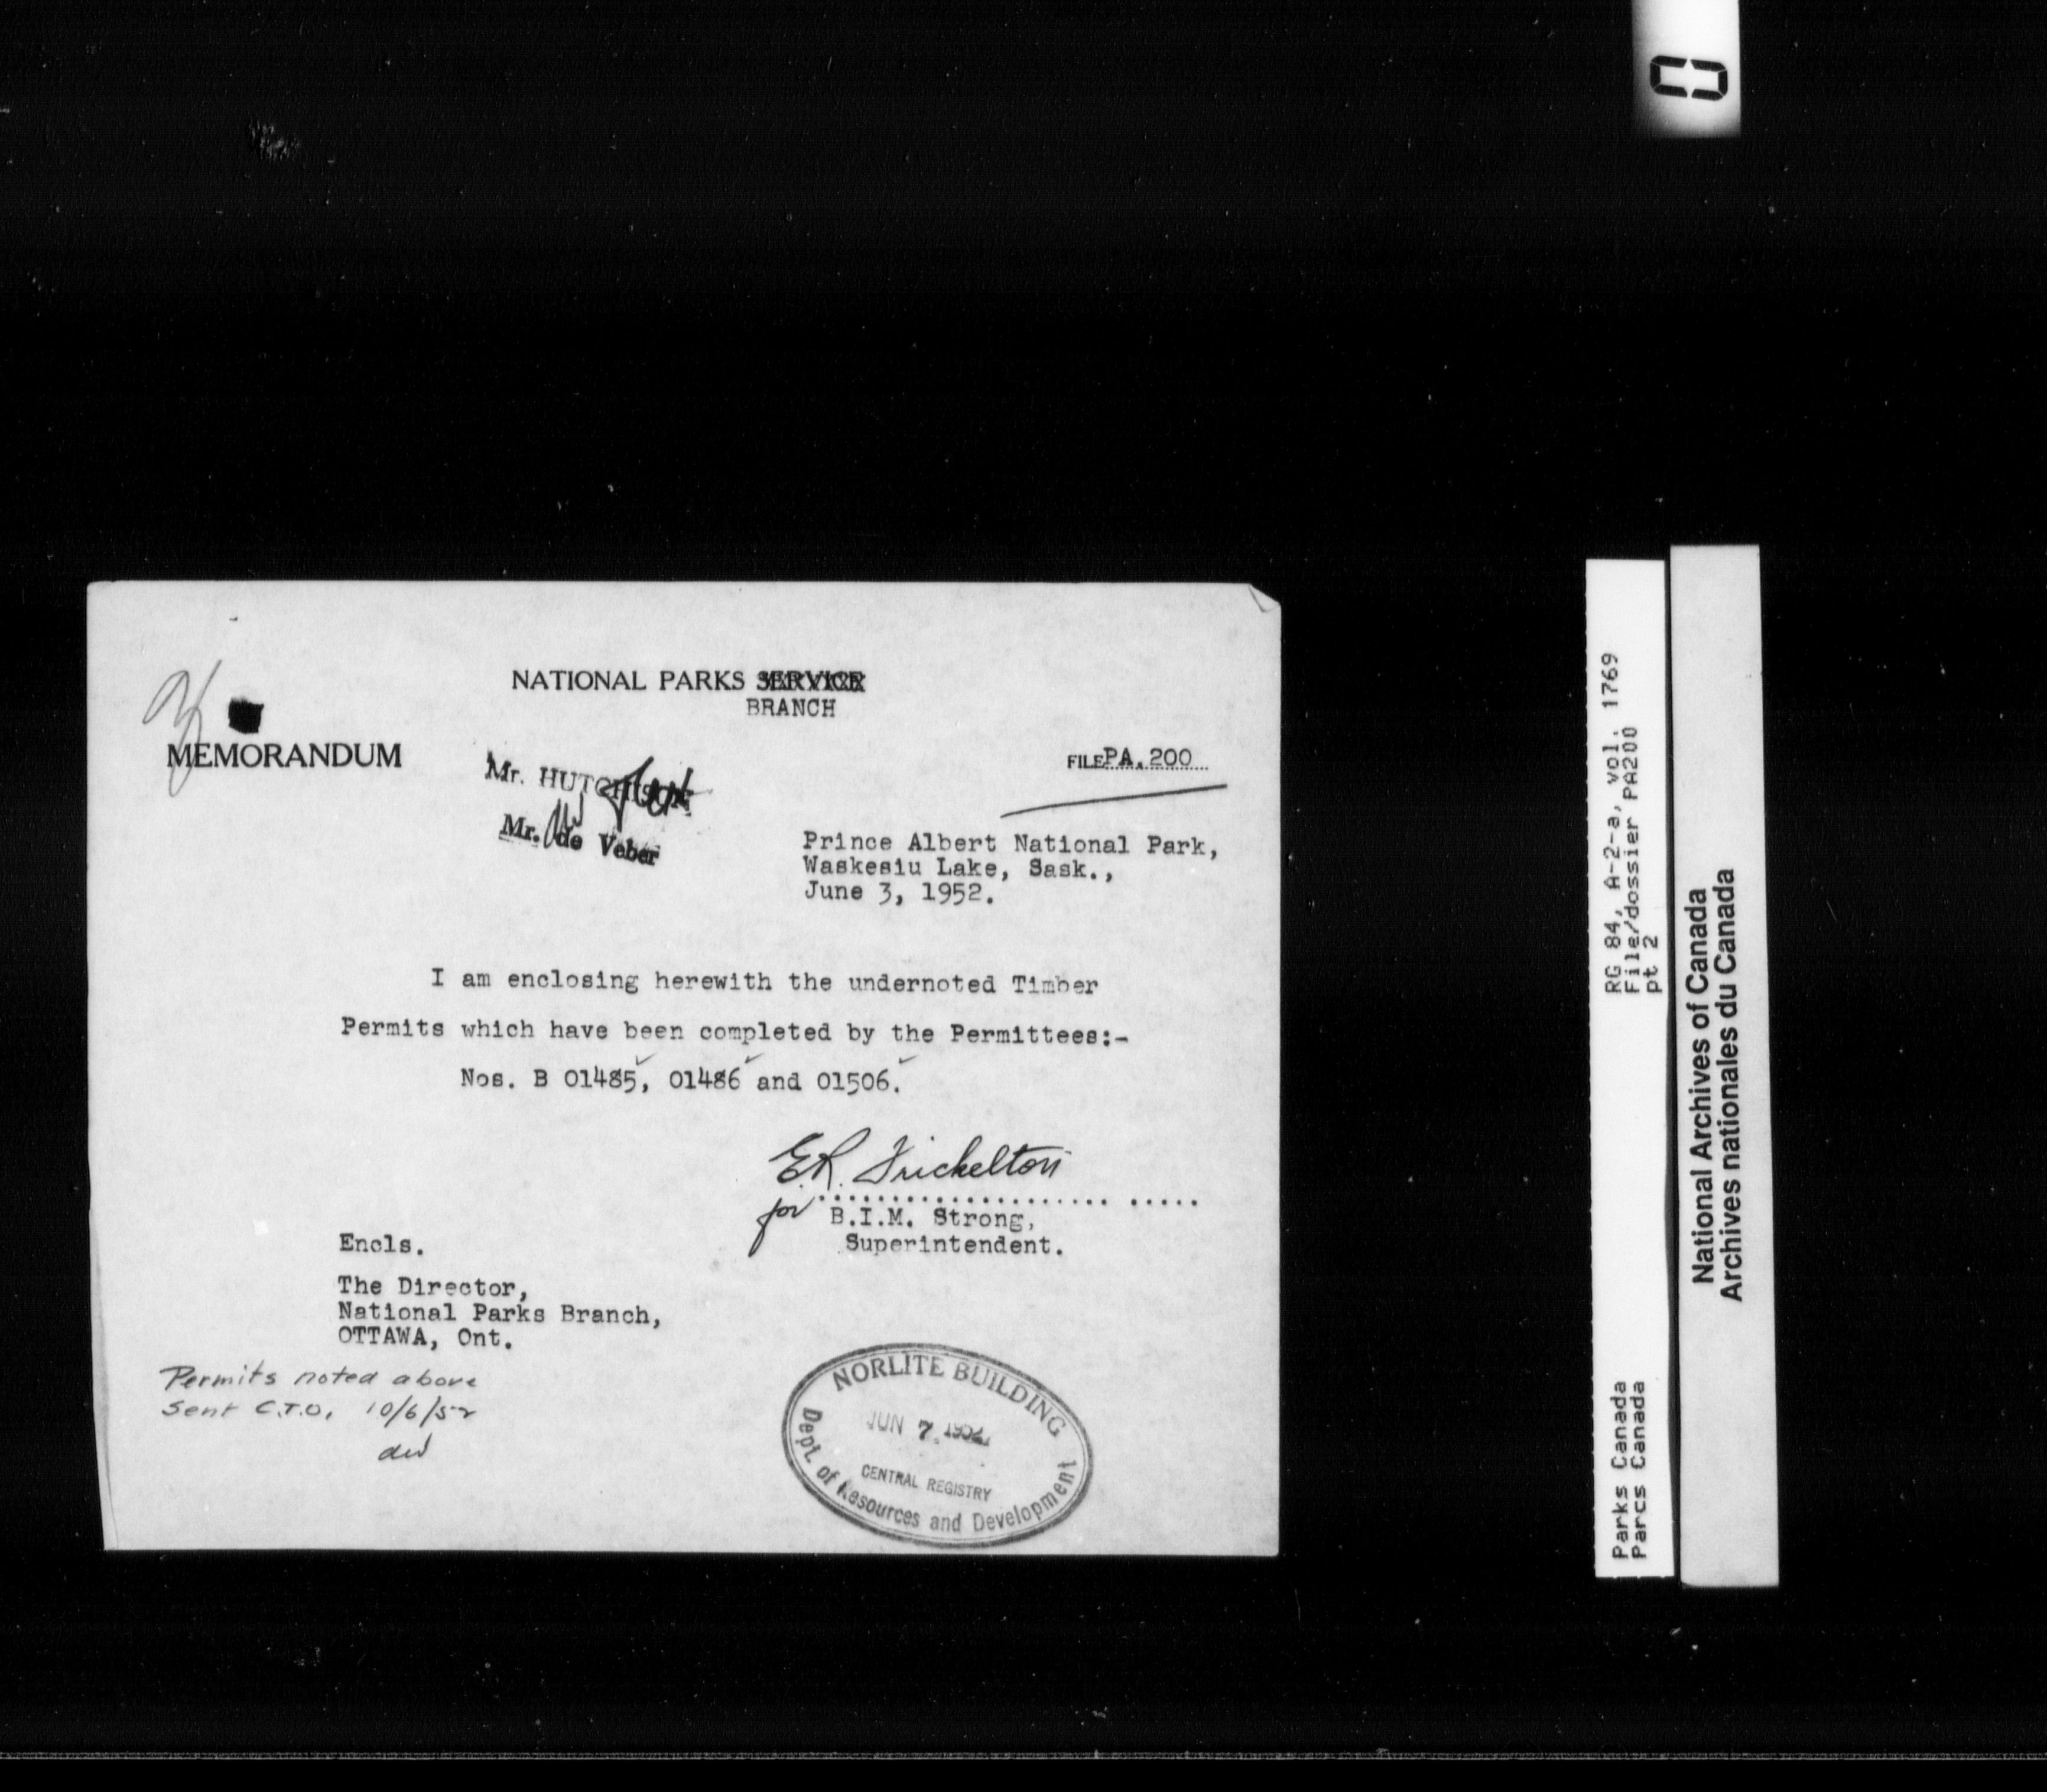 NATIONAL PARKS SERVICE
BRANCH
MEMORANDUM
Mr. HUTCHISON
Mr. de Veber
FILE PA. 200
Prince Albert National Park,
Waskesiu Lake, Sask.,
June 3, 1952.
I am enclosing herewith the undernoted Timber
Permits which have been completed by the Permittees:-
Nos. B 01485, 01486 and 01506.
E.R. Trickelton
for
B.I.M. Strong,
Superintendent.
Encls.
The Director,
National Parks Branch,
OTTAWA, Ont.
Permits noted above
sent C.T.O. 10/6/52
NORLITE BUILDING
JUN 7 1952
CENTRAL REGISTRY
Dept. of Resources and Development
RG 84, A-2-a, vol. 1769
File/dossier PA200
pt 2
Parks Canada
Parcs Canada
National Archives of Canada
Archives nationales du Canada
0